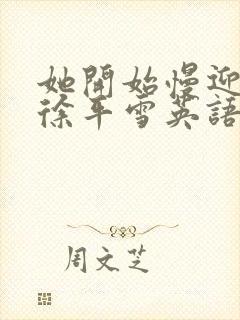 她開始慢迎
徐平雪英語
周文芝